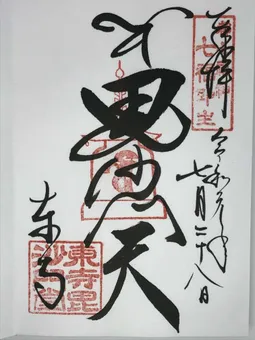 奉拝
令和元年
七月二十八日
毘沙門天
東寺
東寺毘沙門堂